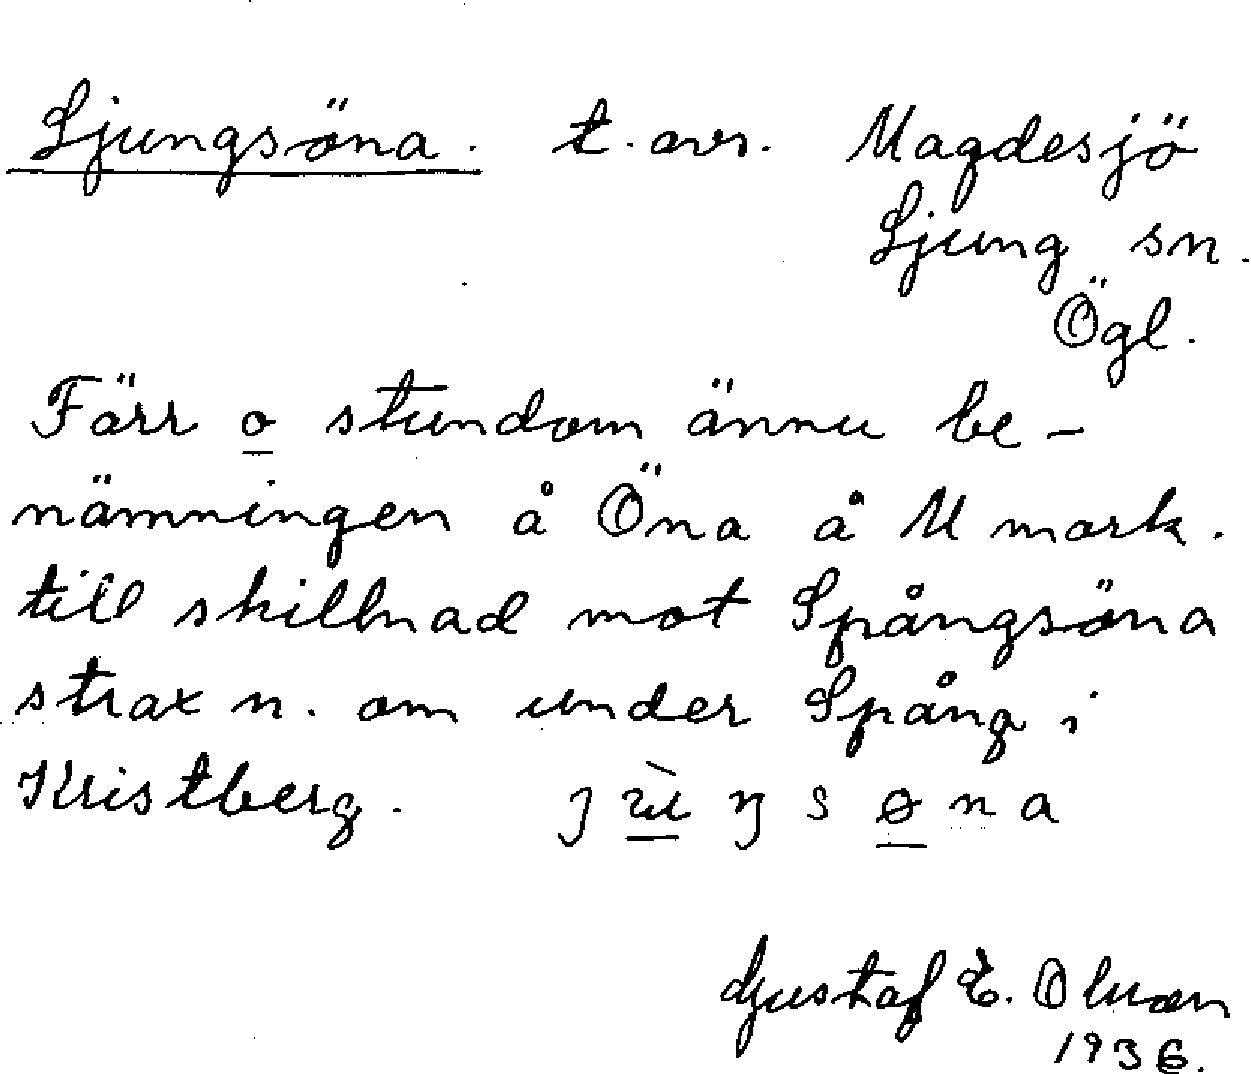 Ljungsöna. t. avs. Magdesjö
Ljung sn.
Ögl.
Förr o stundom ännu be-
nämningen å Öna å M mark.
till skillnad mot Spångsöna
strax n. om under Spång i
Kristberg.
Gustaf E. Olson
1936.